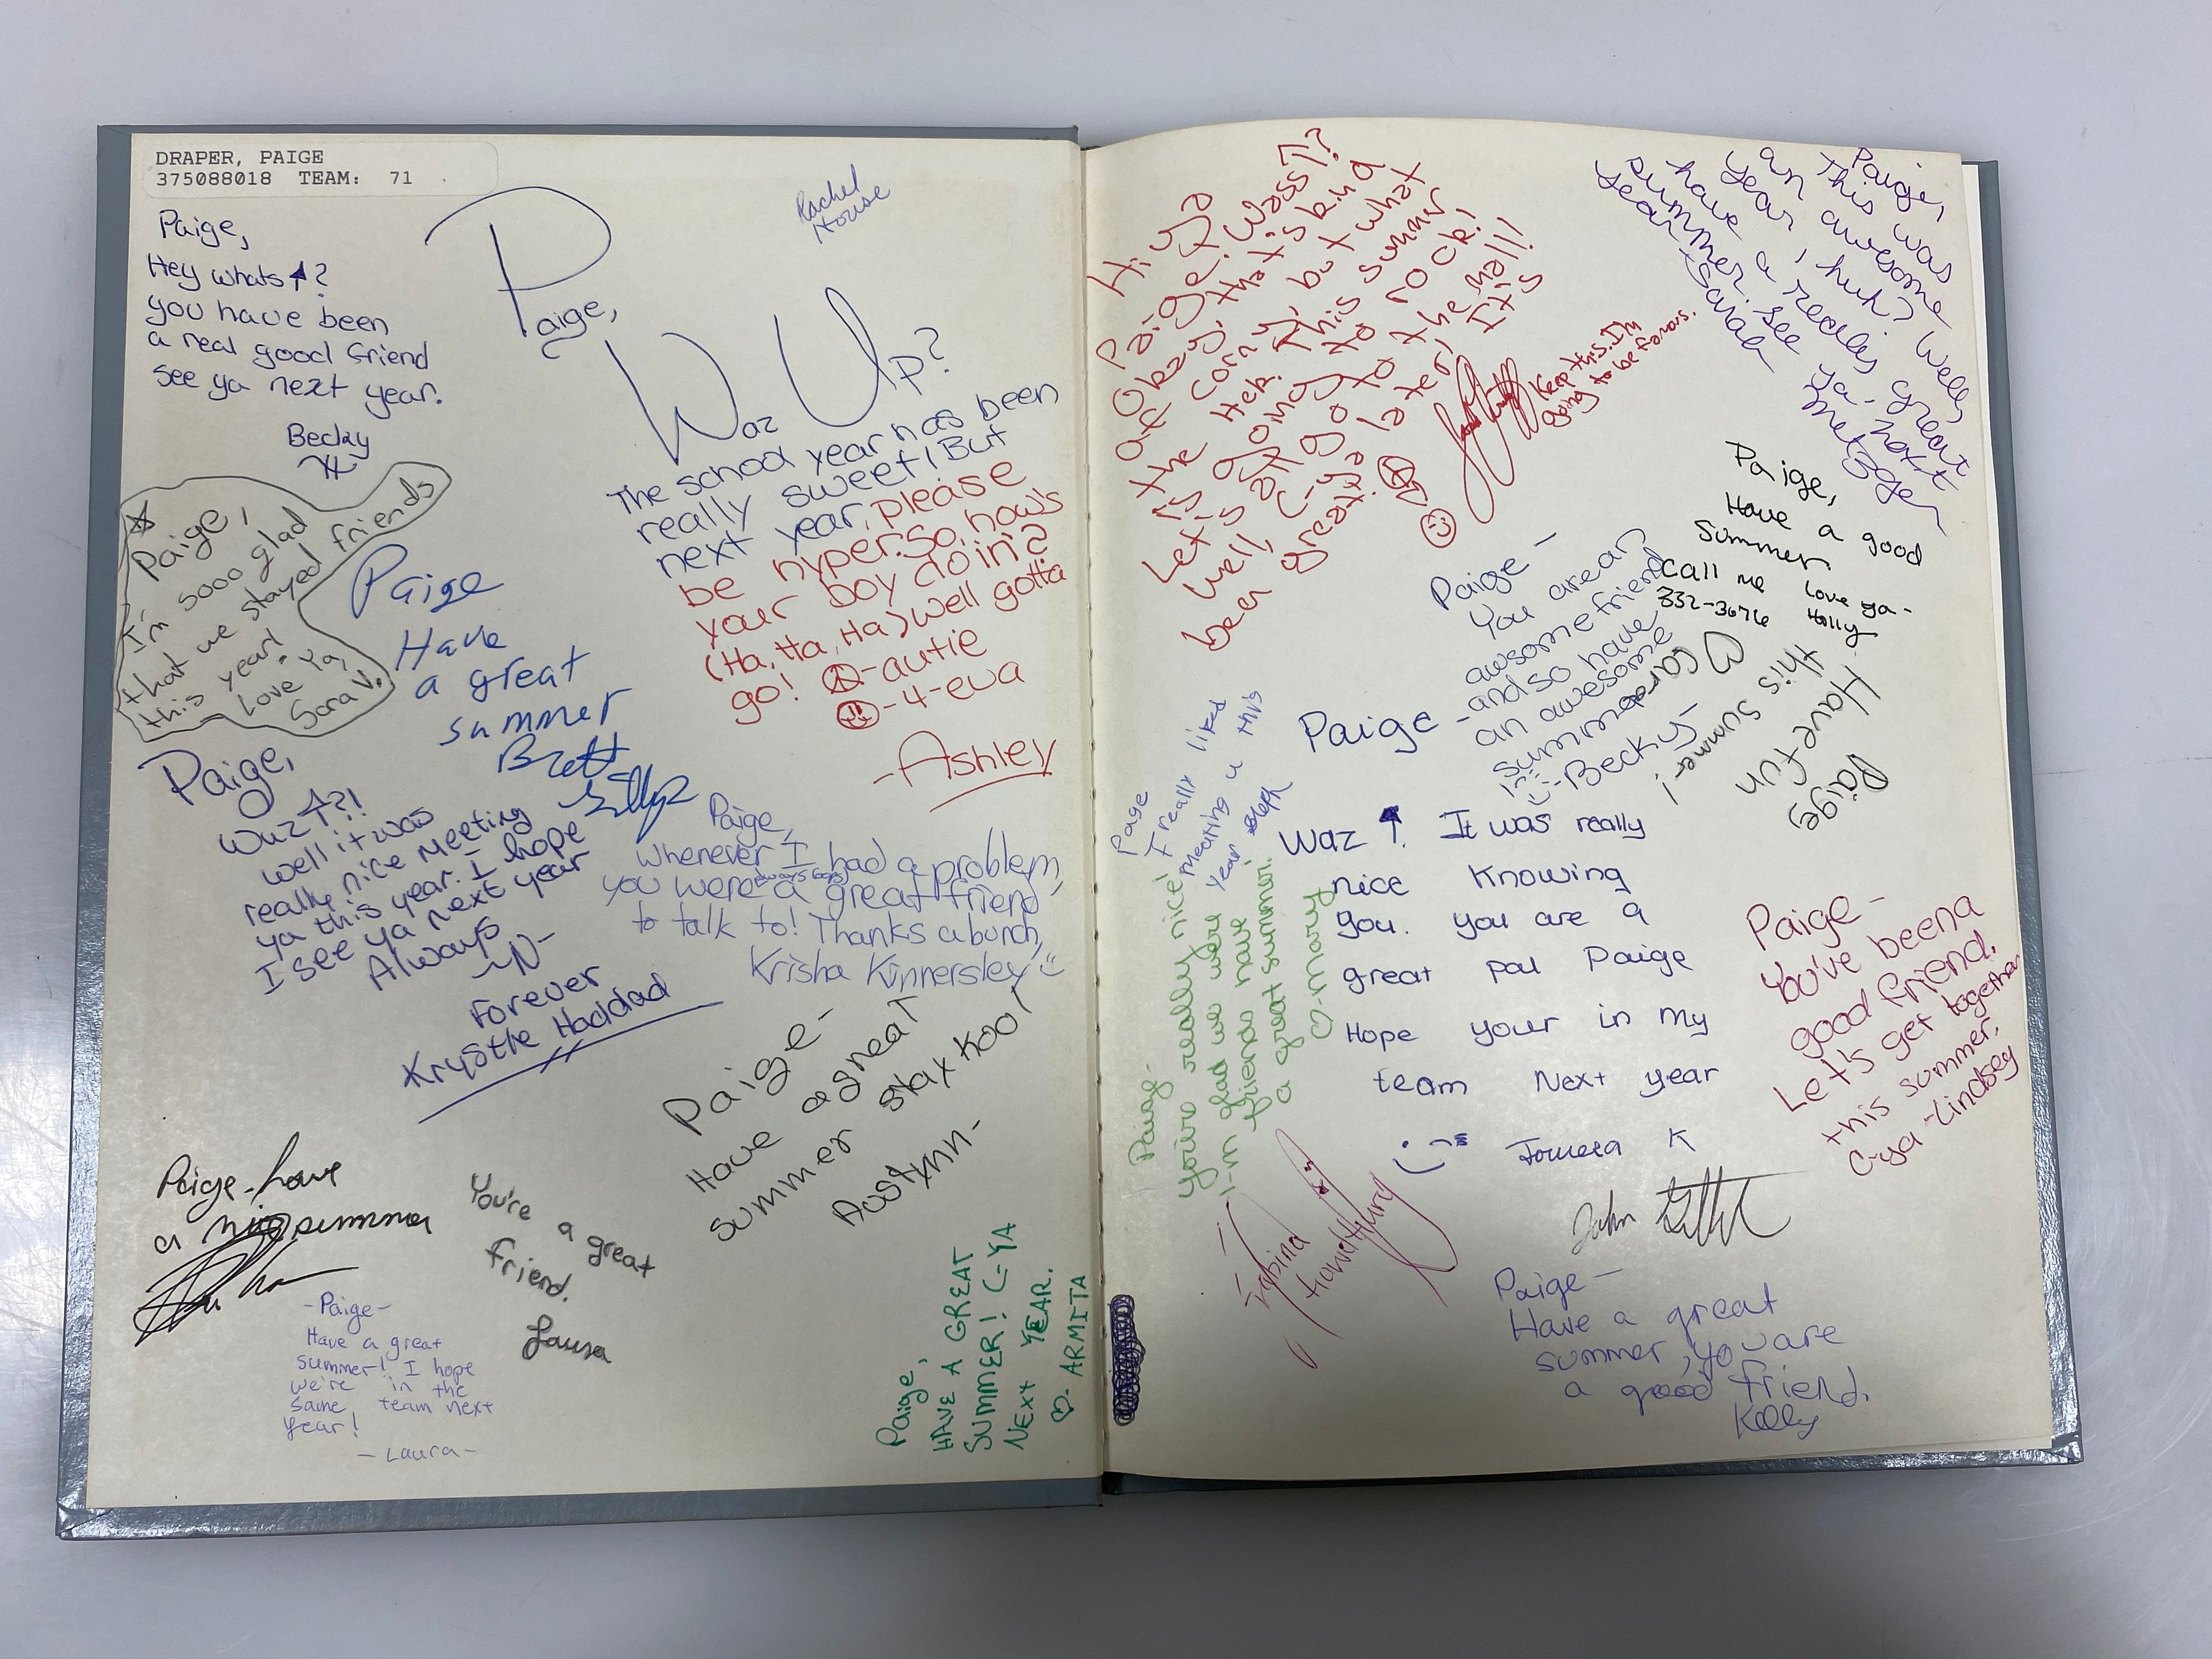 DRAPER, PAIGE
375088018 TEAM: 71
Rachel
House
Paige,
Hey whats ↑?
you have been
a real good friend
see ya next year.
Becky
Paige,
Waz Up?
The school year has been
really sweet! But
next year, please
be hyper. So, how's
your boy doin?
(Ha, Ha, Ha) Well gotta
go! ☮-autie
-4-eva
-Ashley
Paige,
I'm sooo glad
that we stayed friends
this year!
Love Ya,
Sara V.
Paige
Have
a great
summer
Brett
Paige,
Waz ↑?!
well it was
really nice meeting
ya this year. I hope
I see ya next year
Always
-N-
Forever
Krystle Haddad
Paige,
Whenever I had a problem,
you were always a great friend
to talk to! Thanks a bunch,
Krisha Kinnersley
Paige-
Have a great
summer stay kool
Austynn-
Paige-have
a nice summer
You're a great
friend.
Laura
-Paige-
Have a great
summer! I hope
we're in the
same team next
year!
-Laura-
Paige,
HAVE A GREAT
SUMMER! C-YA
NEXT YEAR.
♡- ARMITA
Hiya
Paige! Wass↑?
Okay, that's kind
of corny, but what
the Hek. This summer
is going to rock!
Let's go to the mall!
Well, c-ya later! It's
been great!
Keep this. I'm
going to be famous.
Paige,
This was
an awesome
year, huh? Well,
have a really great
summer. See ya next
year -Sarah Metzger
Paige,
Have a good
summer
call me love ya-
332-3676 Holly
Paige-
You are an
awsome friend
and so have
an awesome
summer
-Becky-
Paige
Have fun
this summer!
♡ Cara
Page
I really liked
meating u this
year
Paige-
You're really nice!
I'm glad we were
friends have
a great summer!
♡-mary
Paige -
Waz ↑? It was really
nice Knowing
you. you are a
great pal Paige
Hope your in my
team Next year
K
Paige-
You've been a
good friend.
Let's get together
this summer.
C-ya -Lindsey
John
Paige-
Have a great
summer, you are
a good friend.
Kelly